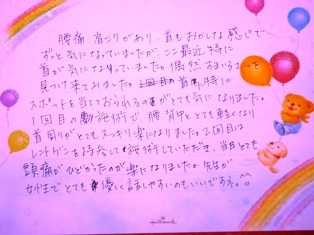 腰痛、肩こりがあり、首もおかしな感じで
ずっと気になっていましたが、ここ最近特に
首が気になり困っていました。偶然
見つけて来てみました。首に特に
スポットを当てておられるのがとても気になりました。
1回目の施術で、腰、背中とても軽くなり
首周りがとてもスッキリ楽になりました。2回目は
レントゲンを持参して施術していただき、当日とても
頭痛がひどかったのが楽になりました。先生が
女性でとても優しく話しやすいのもいいですね。^^
Hallmark